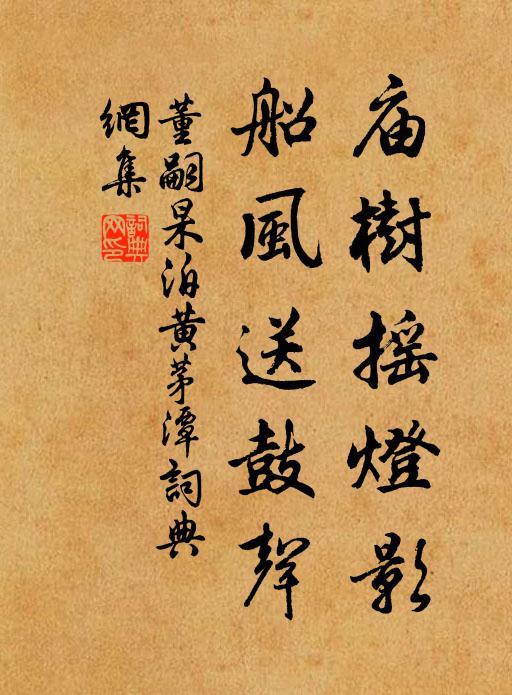 庙樹摇燈影
船風送鼓聲
董嗣杲泊黄茅潭詞典
網集
詞典
网印